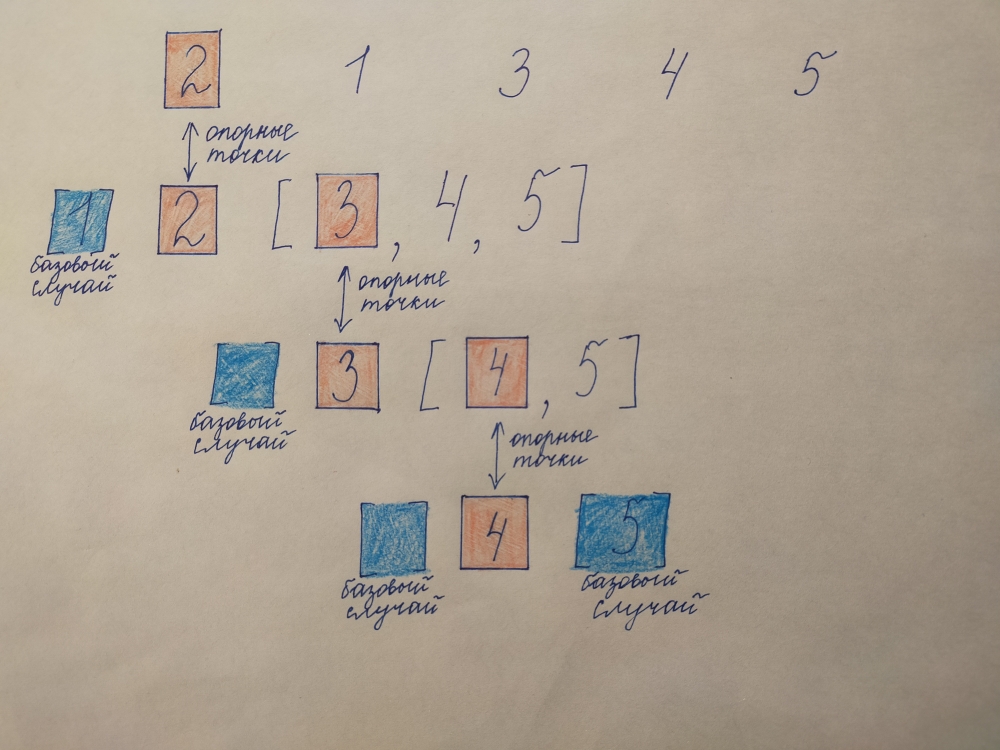 2 1 3 4 5
опорные
точки
1 2 [3, 4, 5]
базовый
случай
опорные
точки
3 [4, 5]
базовый
случай
опорные
точки
4 5
базовый
случай
базовый
случай